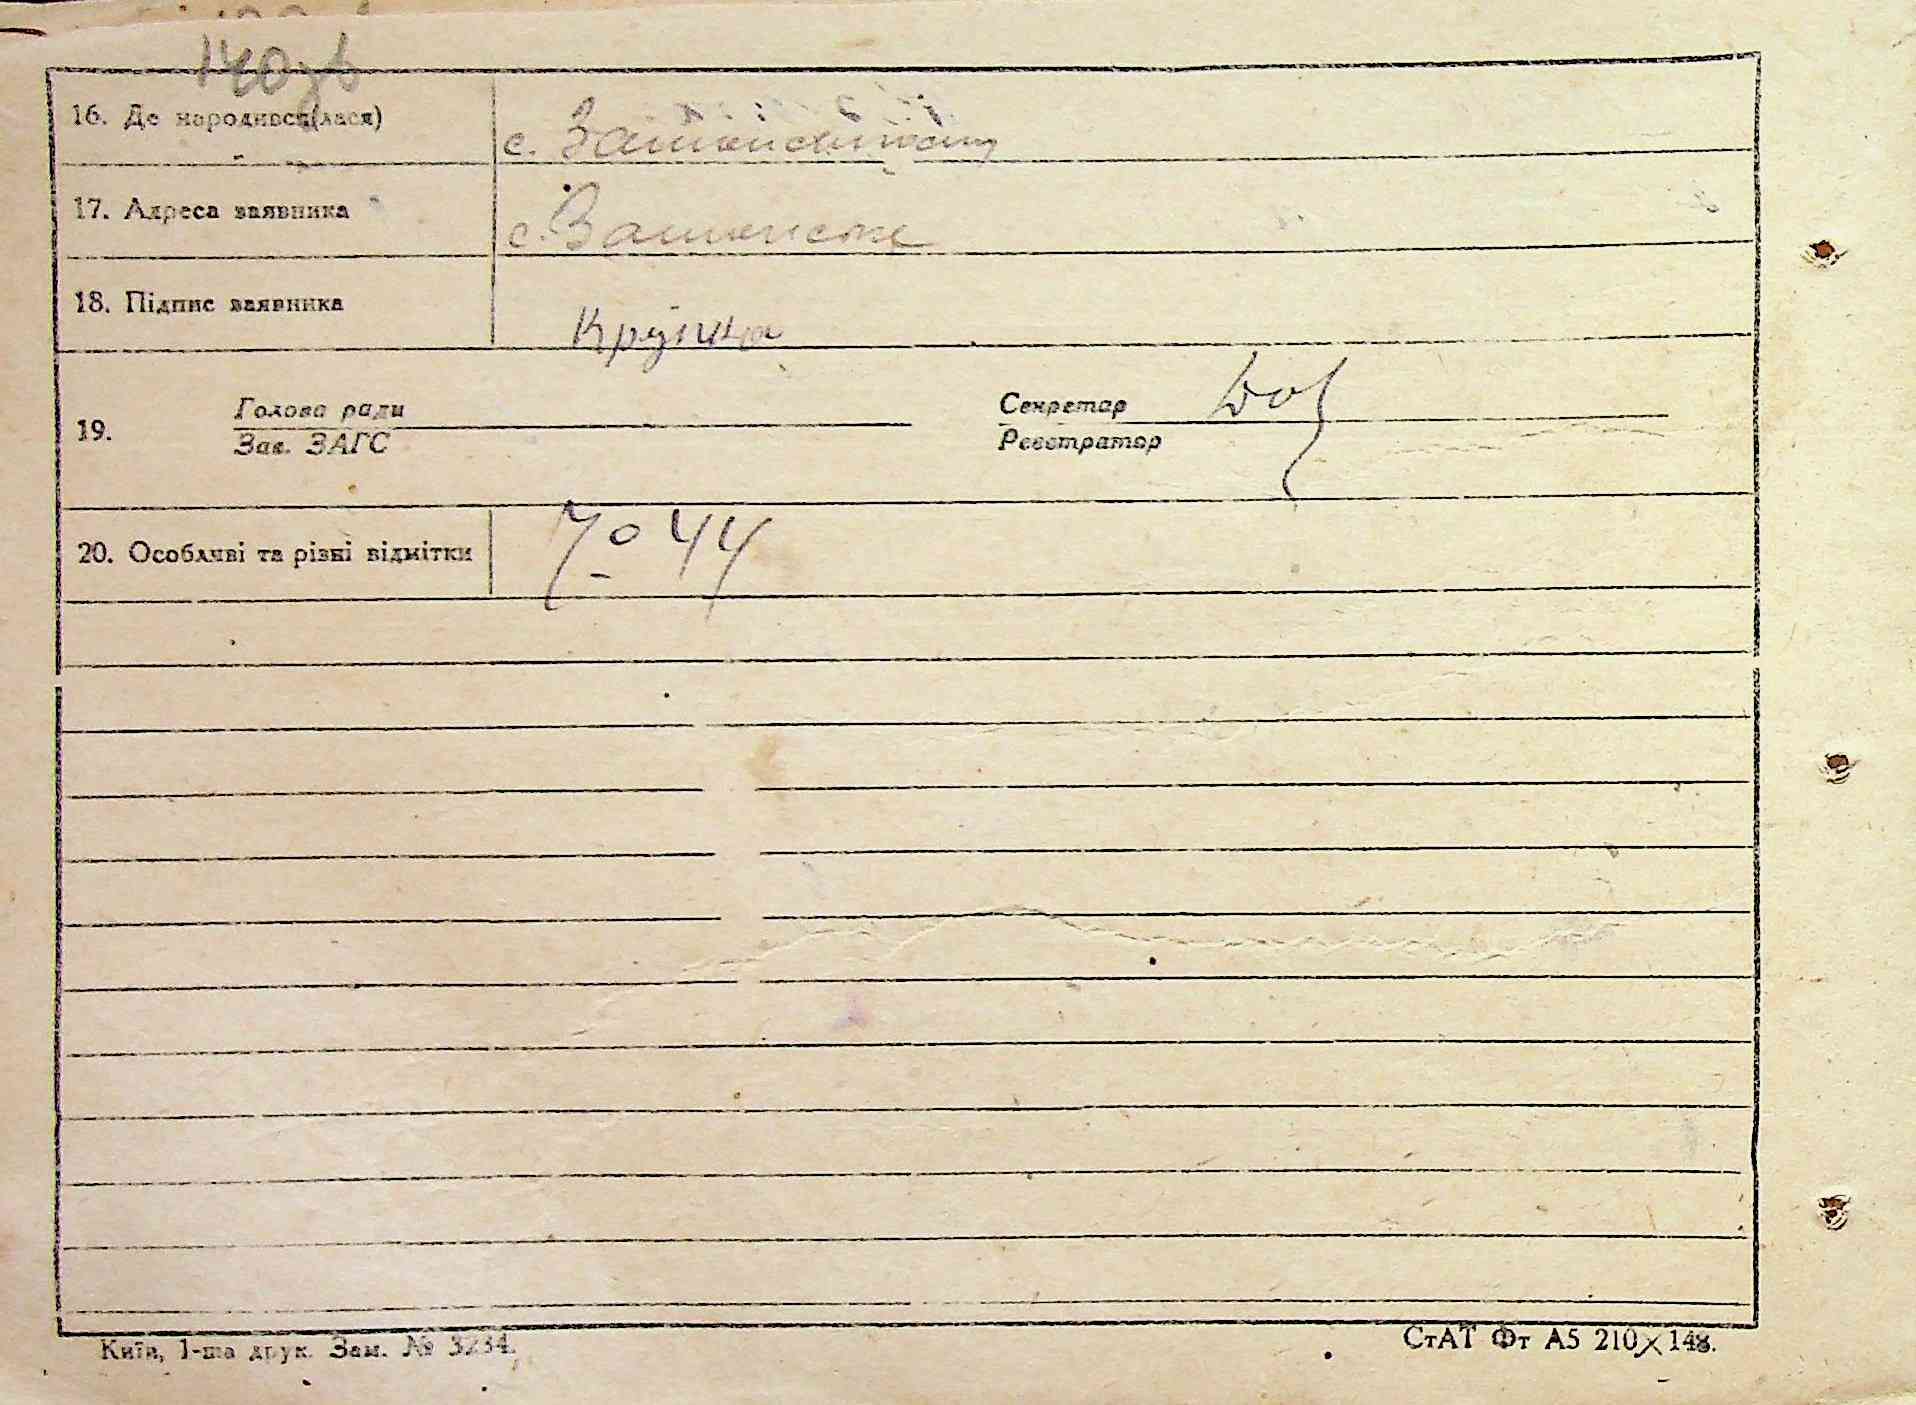 140зв
16. Де народився(лася)
с.
17. Адреса заявника
с.
18. Підпис заявника
19.
Голова ради
Зав. ЗАГС
Секретар
Реєстратор
20. Особливі та різні відмітки
Київ, 1-ша друк. Зам. № 3234.
СтАТ Фт А5 210×148.